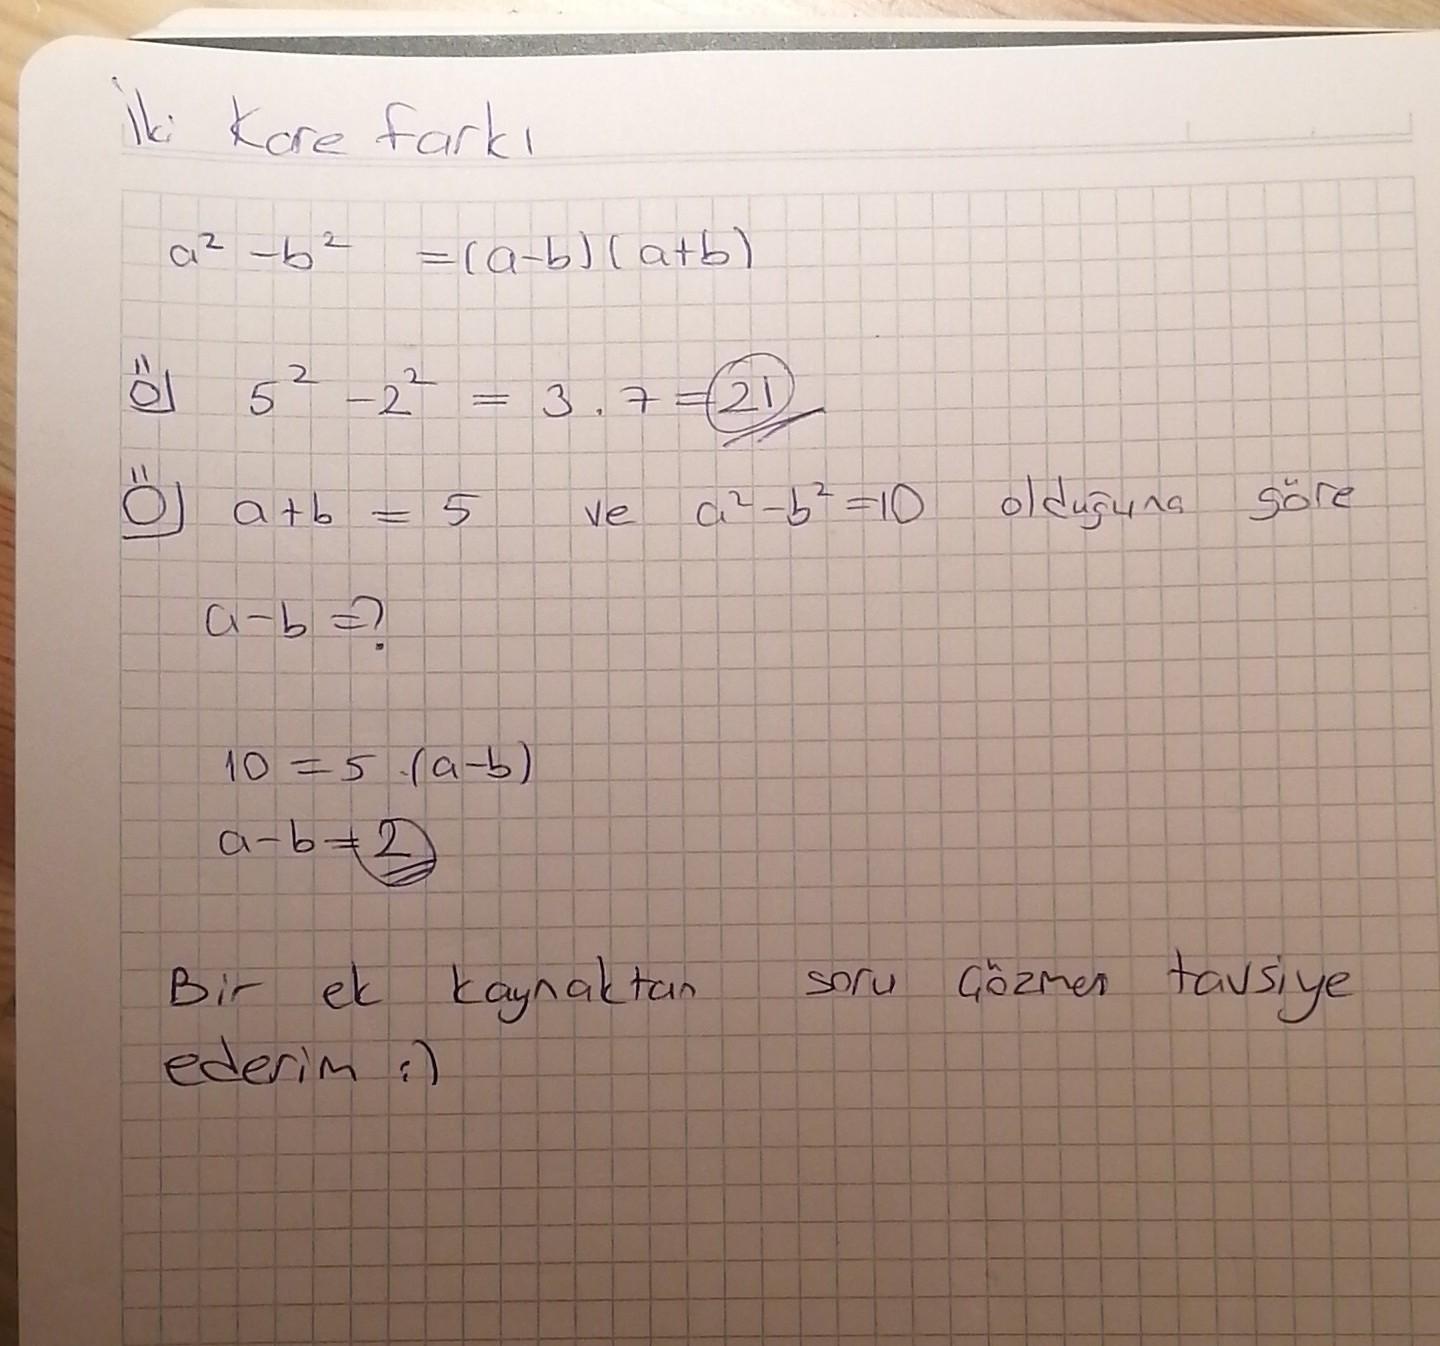 İki Kare farkı
a² - b² = (a-b)(a+b)
Ö) 5² - 2² = 3 . 7 = 21
Ö) a+b = 5 ve a² - b² = 10 olduğuna göre
a-b = ?
10 = 5 . (a-b)
a-b = 2
Bir ek kaynaktan soru çözmen tavsiye
ederim :)